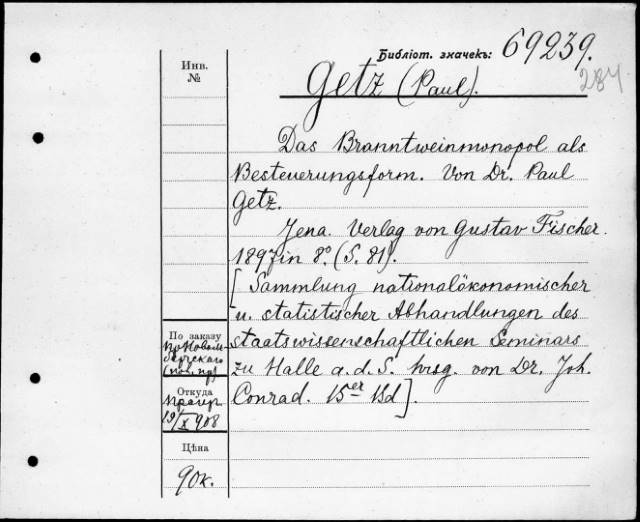 Библіот. значекъ: 69239.
284
Инв. №
Getz (Paul).
Das Branntweinmonopol als
Besteuerungsform. Von Dr. Paul
Getz.
Jena. Verlag von Gustav Fischer.
1897 in 8º. (S. 81).
[Sammlung nationalökonomischer
u. statistischer Abhandlungen des
staatswissenschaftlichen Seminars
zu Halle a. d. S. hrsg. von Dr. Joh.
Conrad. 15er Bd].
По заказу
Откуда
19/X 908
Цѣна
90 к.